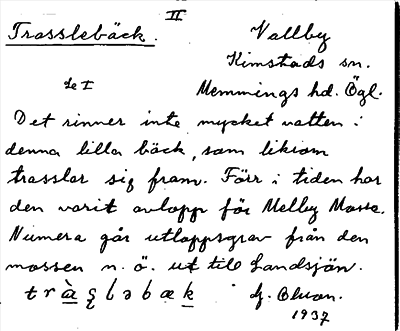 II
Trasslebäck. Vallby
Kimstads sn.
Se I Memmings hd. Ögl.
Det rinner inte mycket vatten i
denna lilla bäck, som liksom
trasslar sig fram. Förr i tiden har
den varit avlopp för Melby Mosse.
Numera går utloppsgrav från den
mossen n. ö. ut till Landsjön.
1937